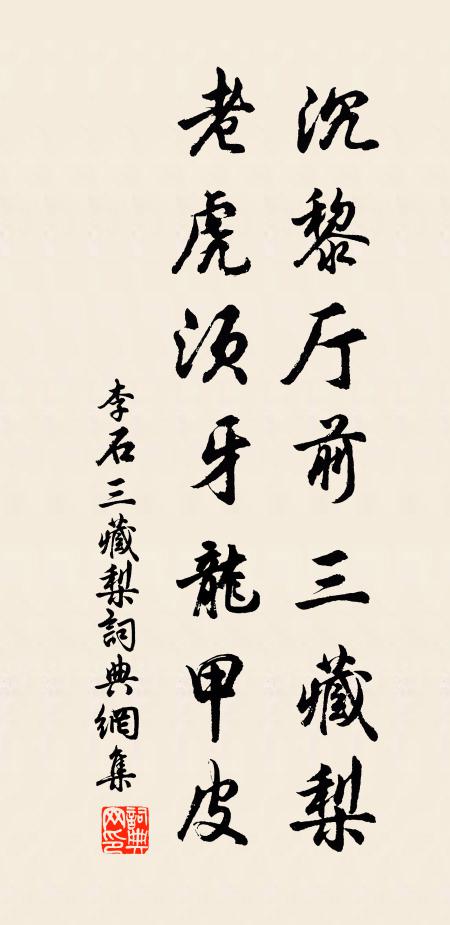 沉黎厅前三藏梨
老虎须牙龍甲皮
李石三藏梨詞典網集
詞典网印